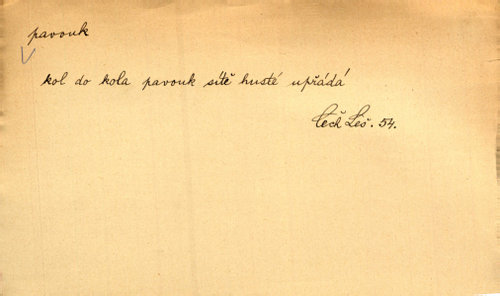 pavouk
kol do kola pavouk sítě husté upřádá
Čech Leš. 54.